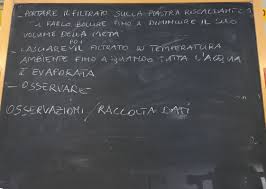 - PORTARE IL FILTRATO SULLA PIASTRA RISCALDANTE
E FARLO BOLLIRE FINO A DIMINUIRE IL SUO
VOLUME DELLA METÀ
POI
- LASCIARE IL FILTRATO A TEMPERATURA
AMBIENTE FINO A QUANDO TUTTA L'ACQUA
È EVAPORATA
- OSSERVARE
OSSERVAZIONI / RACCOLTA DATI